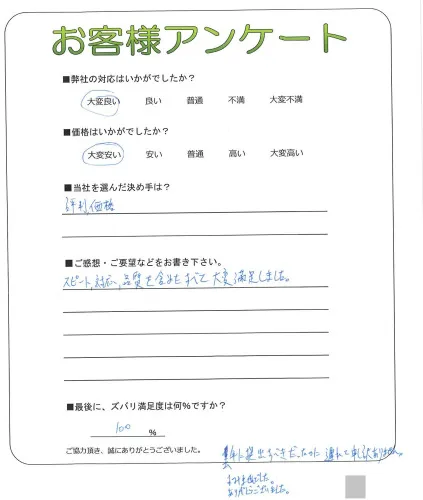 お客様アンケート
■弊社の対応はいかがでしたか？
大変良い 良い 普通 不満 大変不満
■価格はいかがでしたか？
大変安い 安い 普通 高い 大変高い
■当社を選んだ決め手は？
評判、価格
■ご感想・ご要望などをお書き下さい。
スピード、対応、品質を含めたすべて大変満足しました。
■最後に、ズバリ満足度は何%ですか？
100 %
ご協力頂き、誠にありがとうございました。
提出すべきだったのに遅れて申訳ありません。
ありがとうございました。